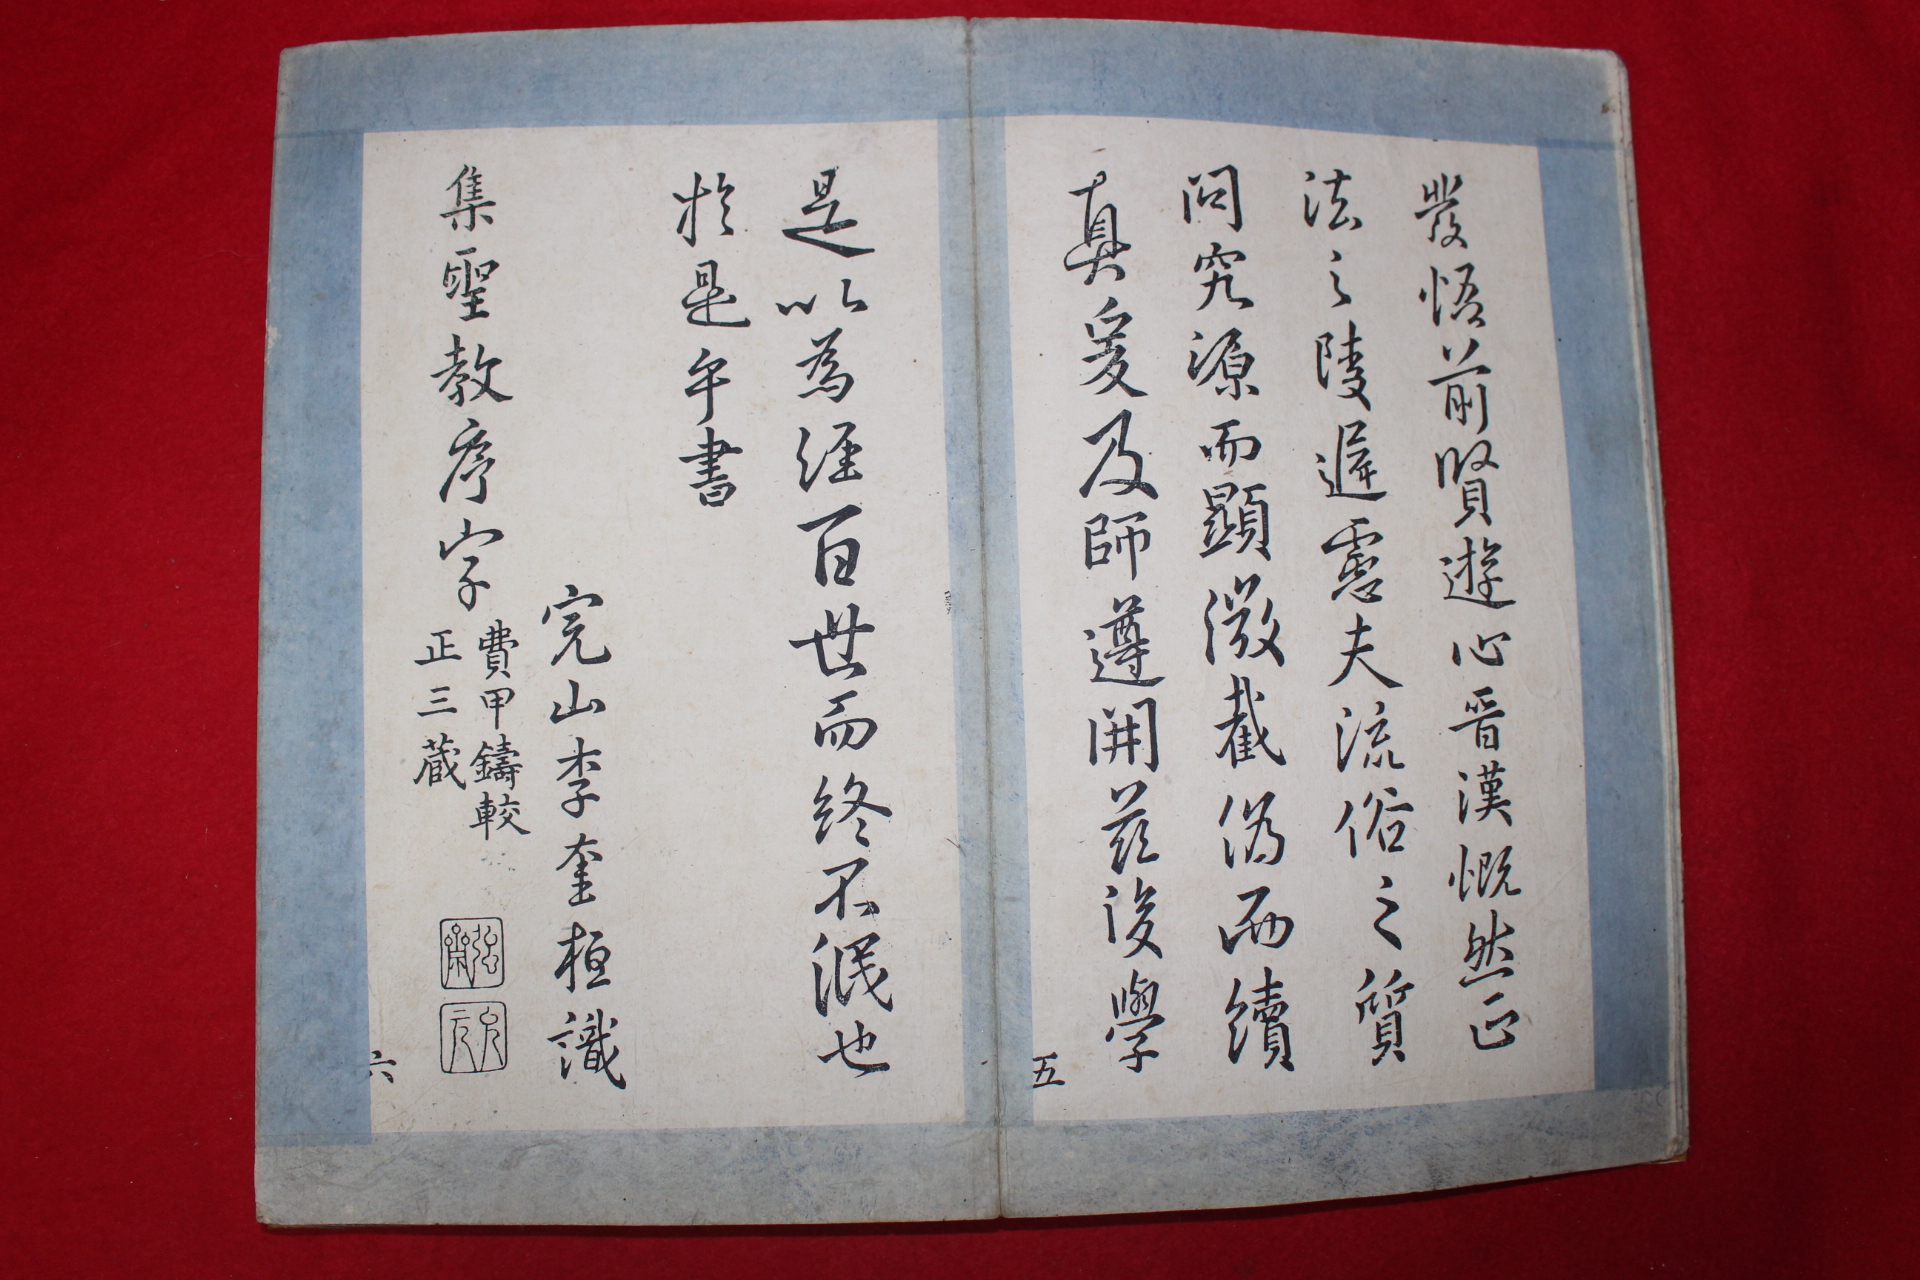 發悟前賢遊心晉漢慨然正
法之陵遲憂夫流俗之質
問究源而顯微截偽而續
真爰及師遵開茲後學
五
是以為經百世而終不泯也
於是乎書
完山李奎桓識
集聖教序字
費甲鑄較
正三蔵
六